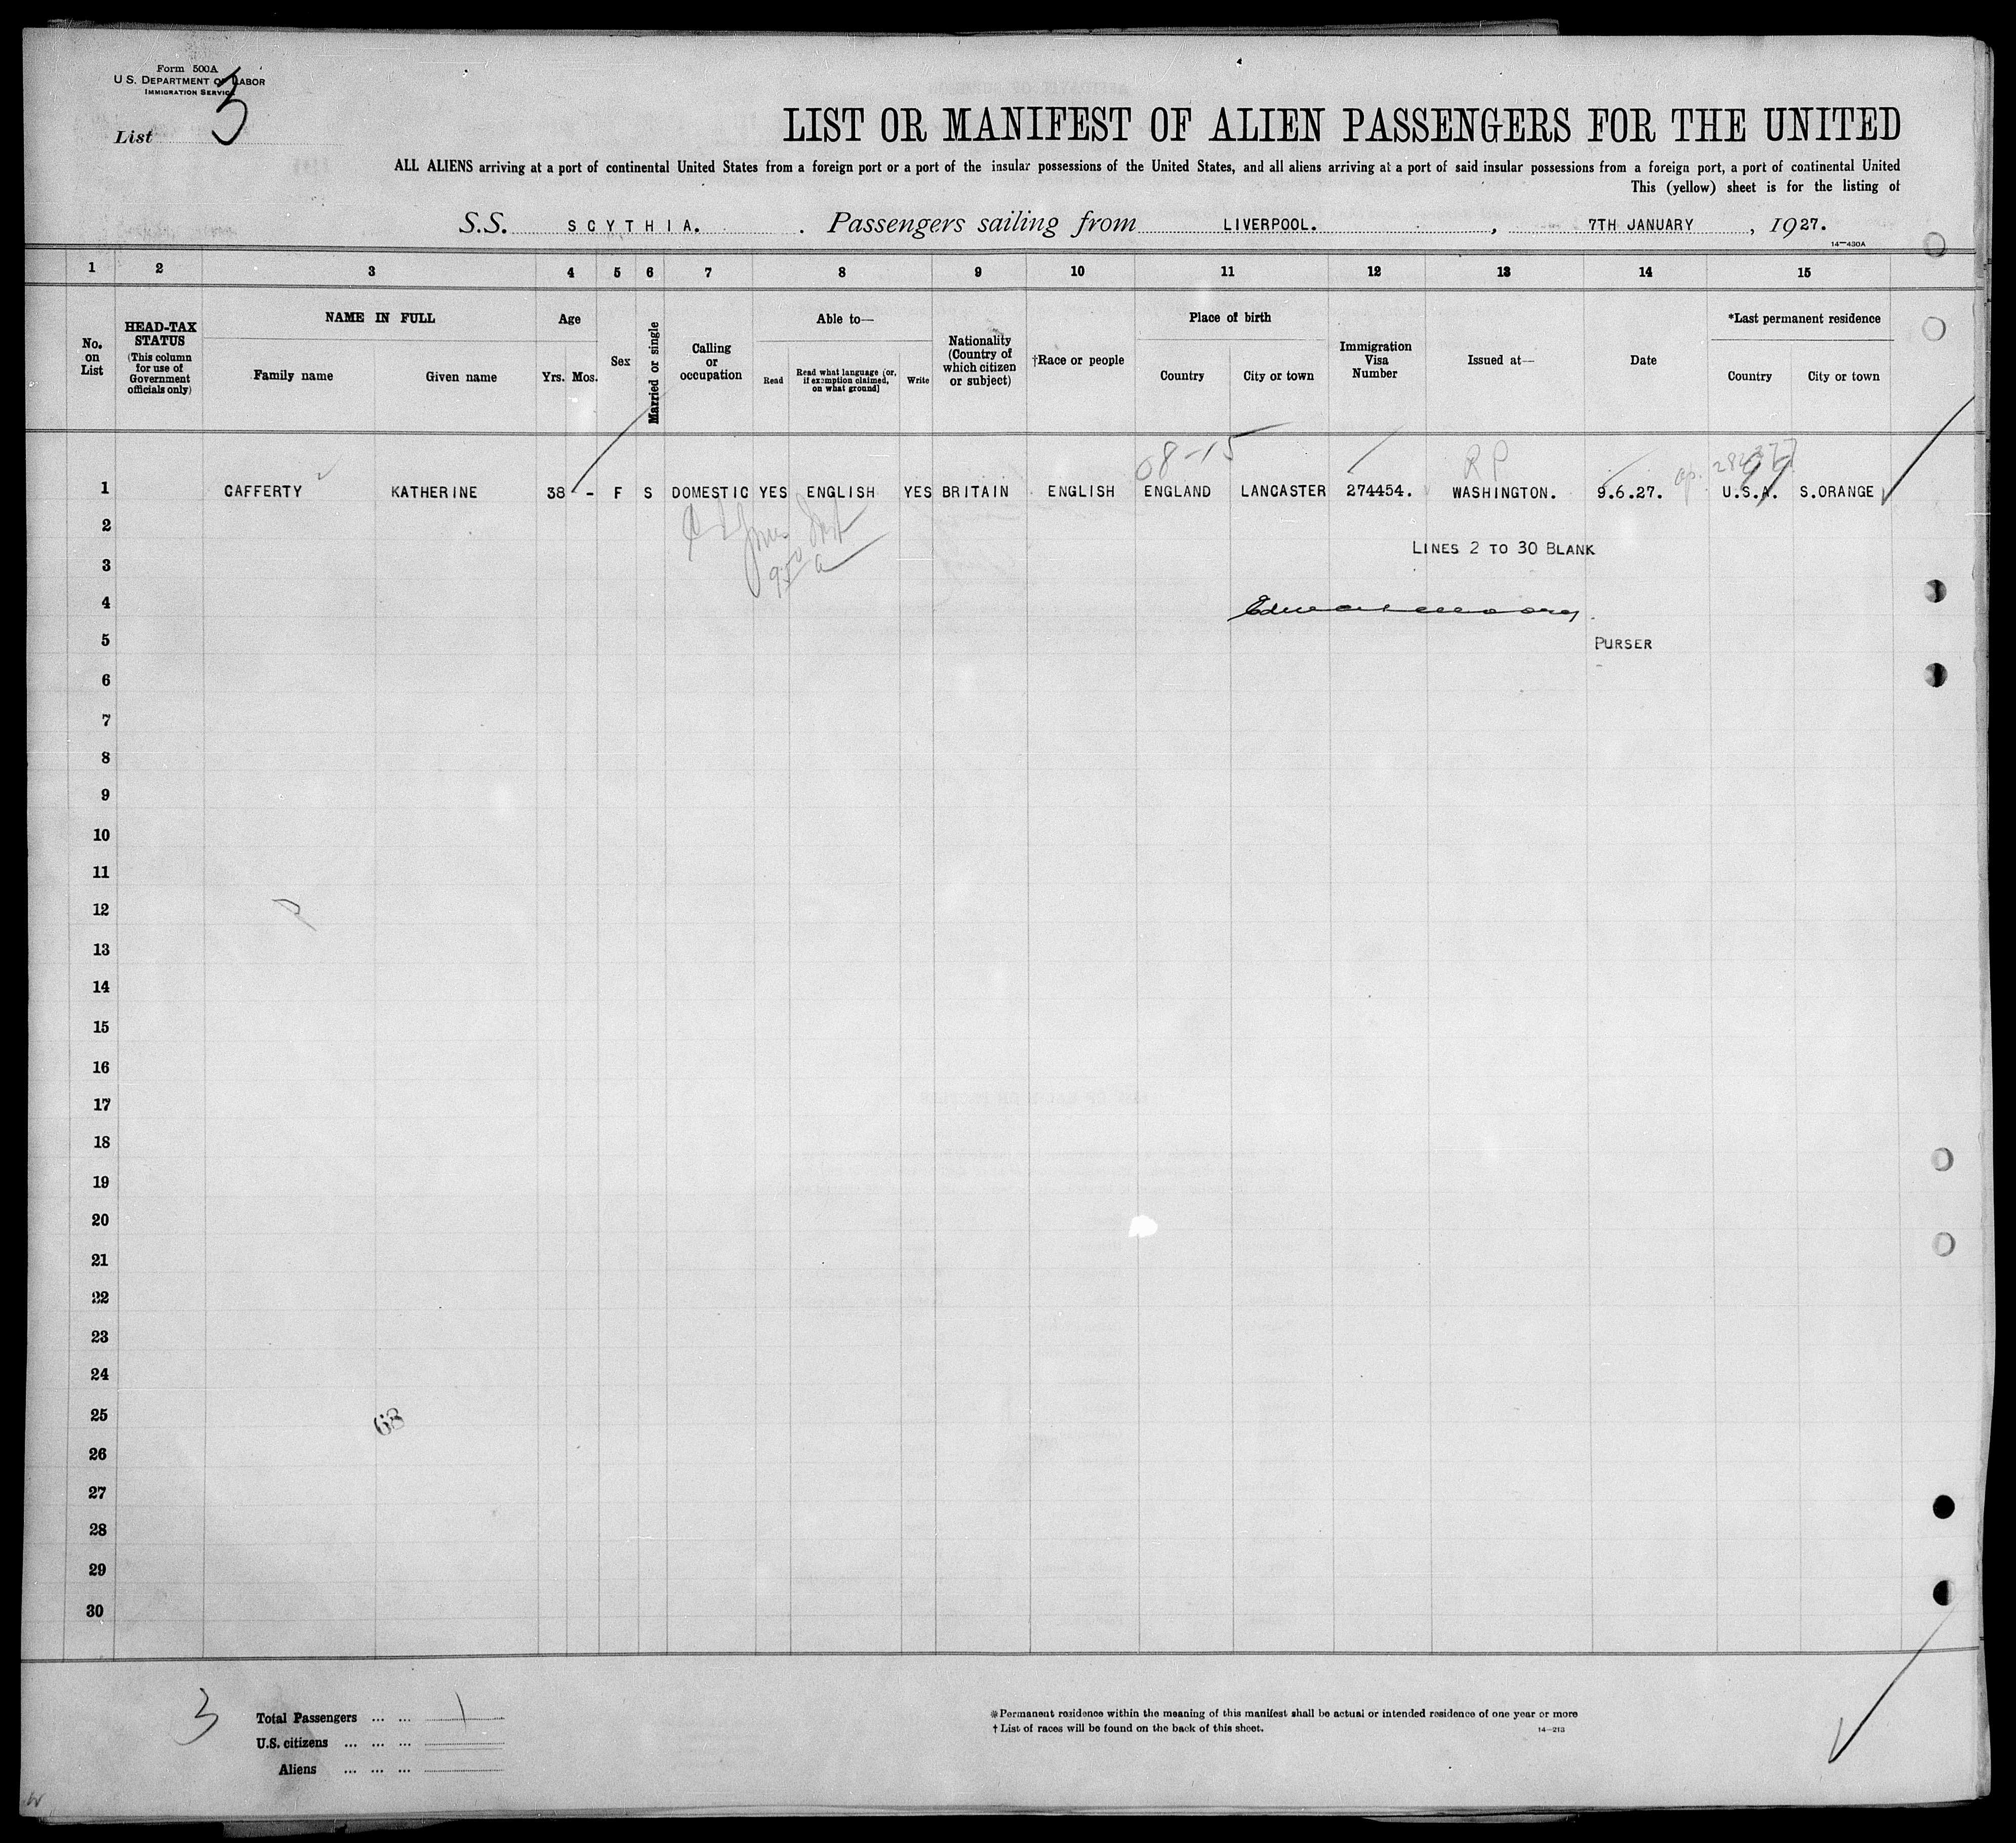 Form 500A
U.S. DEPARTMENT OF LABOR
IMMIGRATION SERVICE
List 3
LIST OR MANIFEST OF ALIEN PASSENGERS FOR THE UNITED
ALL ALIENS arriving at a port of continental United States from a foreign port or a port of the insular possessions of the United States, and all aliens arriving at a port of said insular possessions from a foreign port, a port of continental United
This (yellow) sheet is for the listing of
S.S. SCYTHIA. Passengers sailing from LIVERPOOL. , 7TH JANUARY , 1927.
14—430A
1 2 3 4 5 6 7 8 9 10 11 12 13 14 15
No. on List
HEAD-TAX STATUS (This column for use of Government officials only)
NAME IN FULL
Family name
Given name
Age
Yrs. Mos.
Sex
Married or single
Calling or occupation
Able to—
Read
Read what language [or, if exemption claimed, on what ground]
Write
Nationality (Country of which citizen or subject)
†Race or people
Place of birth
Country
City or town
Immigration Visa Number
Issued at—
Date
*Last permanent residence
Country
City or town
08-15 RP
1 CAFFERTY KATHERINE 38 - F S DOMESTIC YES ENGLISH YES BRITAIN ENGLISH ENGLAND LANCASTER 274454. WASHINGTON. 9.6.27. U.S.A. S.ORANGE
2
LINES 2 TO 30 BLANK
3
4
5
PURSER
6
7
8
9
10
11
12
13
14
15
16
17
18
19
20
21
22
23
24
25
68
26
27
28
29
30
3
Total Passengers ... ... 1
U.S. citizens ... ... ...
Aliens ... ... ...
*Permanent residence within the meaning of this manifest shall be actual or intended residence of one year or more
†List of races will be found on the back of this sheet.
14—213